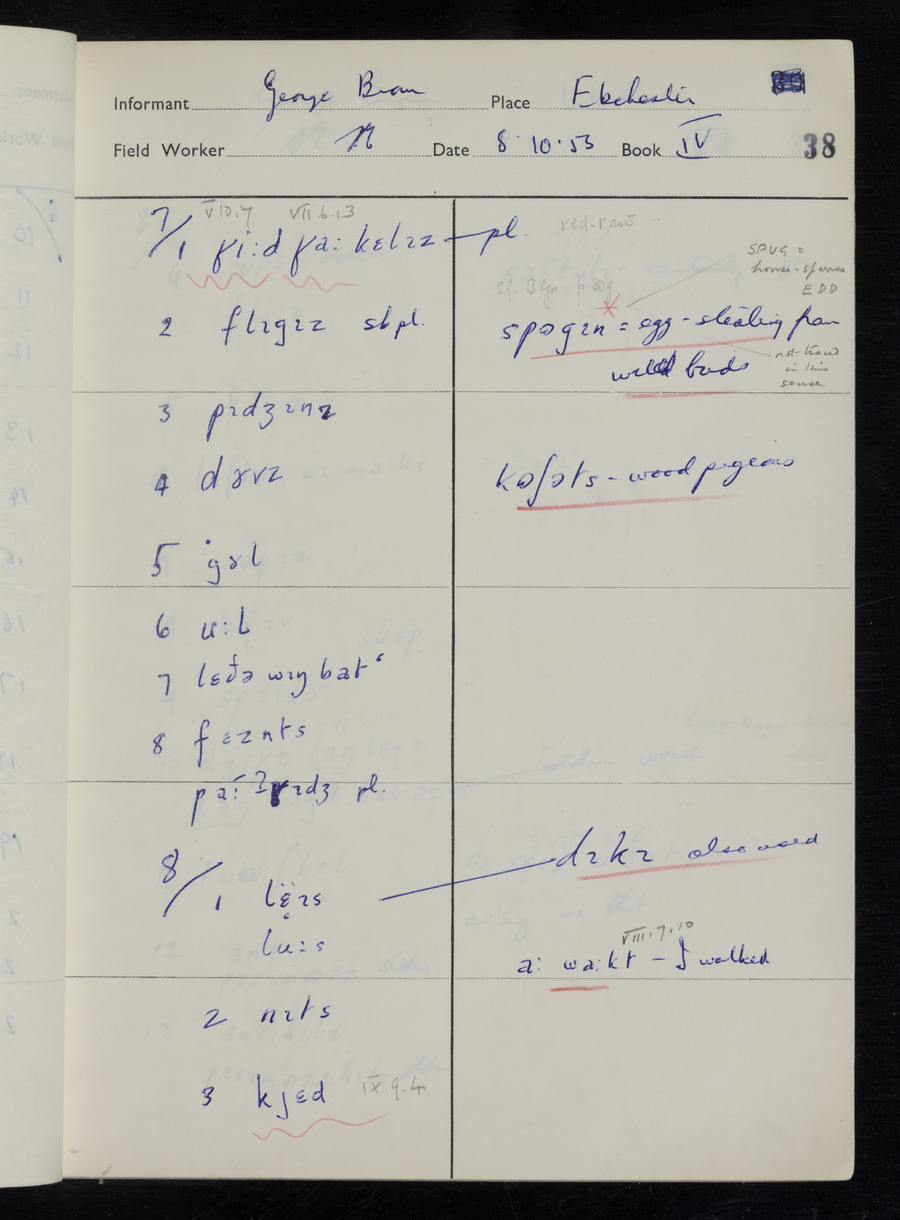 Informant George Brown Place Ebchester
Field Worker N Date 8·10·53 Book IV 38
V.10.7 VII.6.13 red-raw
7/1 pl.
SPUG =
house-sparrow
EDD
2 flɪgɪz sb pl. spəgɪn = egg-stealing from
wild birds
not traced
in this
sense
3 pɪdʒɪnz
4 dɤvz kəʃəts - wood pigeons
5 gɤl
6 u:l
7 lɛðə wɪŋ bat
8 fɛznts
pl.
8/1 lɛ̈ɪs dɪkɪ also used
lu:s
VIII.7.10
a: wa:kt - I walked
2 nɪts
3 kjɛd IX.9.4